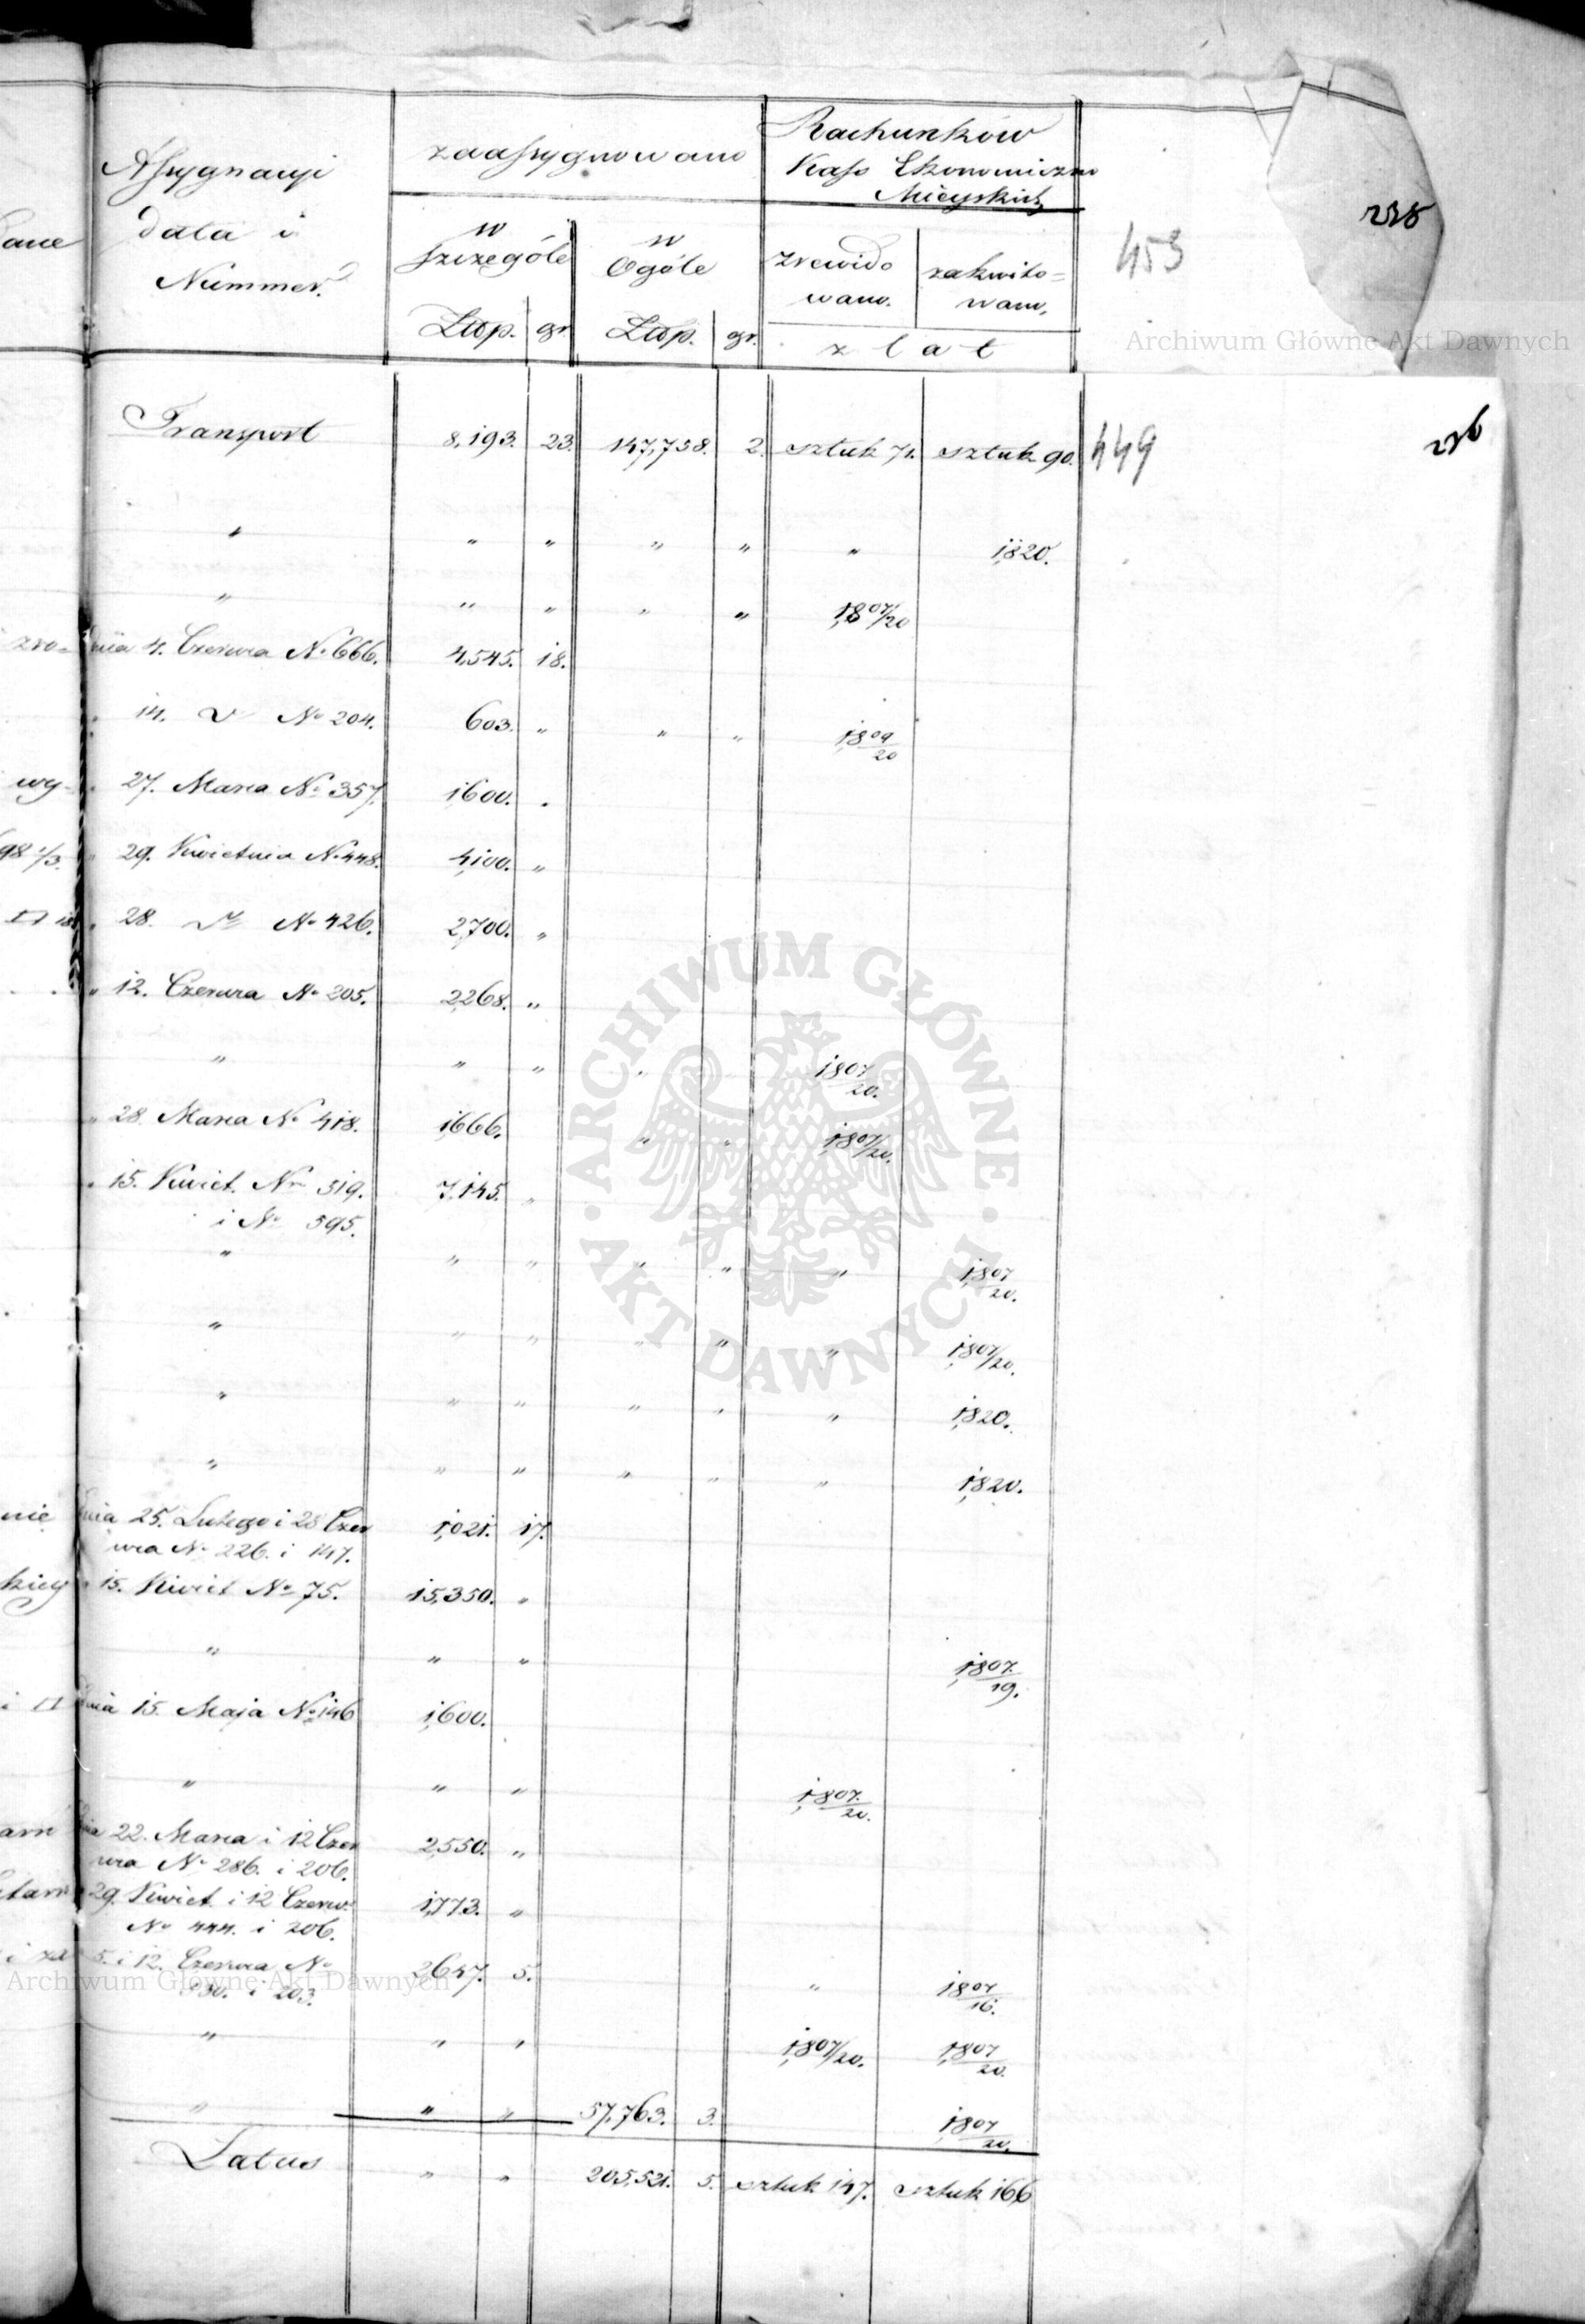 Assygnacyi
data i
Nummer.
zaassygnowano
w
szczególe
w
Ogóle
Złłp. gr. Złłp. gr.
Rachunków
Kass Ekonomiczno
Mieyskich
zrewido
wano.
zakwito=
wano.
z lat
453
238
Archiwum Główne Akt Dawnych
Transport 8,193. 23. 147,758. 2. sztuk 71. sztuk 90.
449
236
" " " " " " 1820.
" " " " " 1807/20
zro= dnia 4. Czerwca No 666. 4,545. 18.
" 14. No 204. 603. " " " 1809/20
wy= " 27. Marca No 357. 1,600. "
98 1/3. " 29. Kwietnia No 448. 4,100. "
" 28. No 426. 2,700. "
" 12. Czerwca No 205. 2,268. "
" " " " 1807/20.
" 28. Marca No 418. 1,666. " " 1807/20.
" 15. Kwiet. No 319. 7,145. "
i No 395.
" " " " " " 1807/20.
" " " " " " 1807/20.
" " " " " " 1820.
" " " " " " 1820.
nie dnia 25. Lutego i 28 Czer 1,021. 17.
wca No 226. i 147.
kiey " 15. Kwiet No 75. 15,350. "
" " " 1807/19.
dnia 15. Maja No 146 1,600.
" " " 1807/20.
dnia 22. Marca i 12 Czer 2,550. "
wca No 286. i 206.
29. Kwiet. i 12 Czerw. 1,773. "
No 444. i 206.
i za 5. i 12. Czerwca No 2,647. 5. " 1807/16.
i 203.
Archiwum Główne Akt Dawnych
" " " 1807/20. 1807/20.
" " " 57,763. 3. 1807/20.
Latus " " 205,521. 5. sztuk 147. sztuk 166
ARCHIWUM GŁÓWNE AKT DAWNYCH